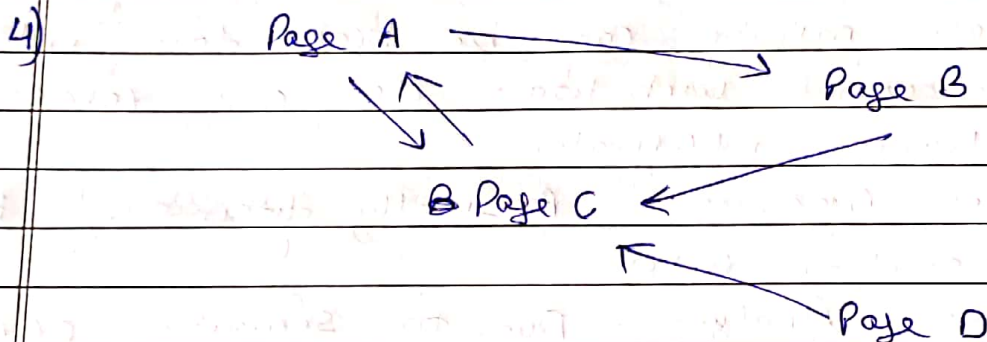 4)
Page A
Page B
Page C
Page D